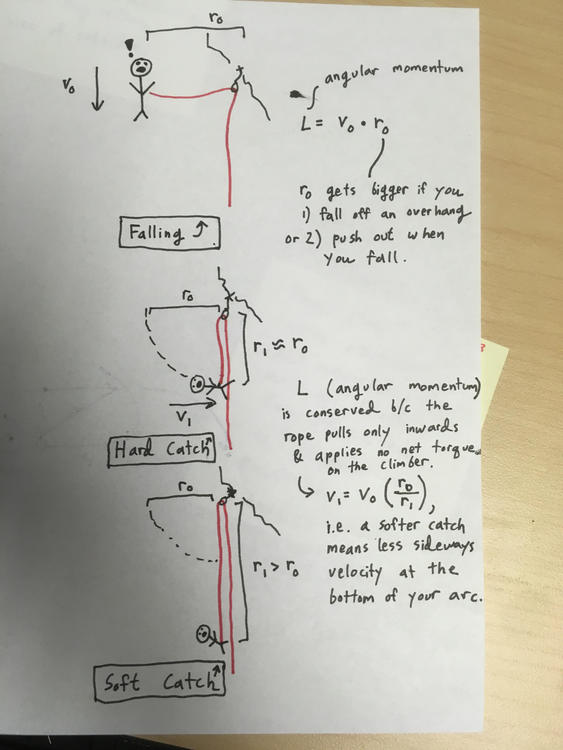 r₀
!
v₀
angular momentum
L = v₀ • r₀
r₀ gets bigger if you
1) fall off an overhang
or 2) push out when
you fall.
Falling ↑
r₀
r₁ ≈ r₀
v₁
Hard Catch↑
L (angular momentum)
is conserved b/c the
rope pulls only inwards
& applies no net torque
on the climber.
↳ v₁ = v₀ (r₀/r₁),
i.e. a softer catch
means less sideways
velocity at the
bottom of your arc.
r₀
r₁ > r₀
Soft Catch↑